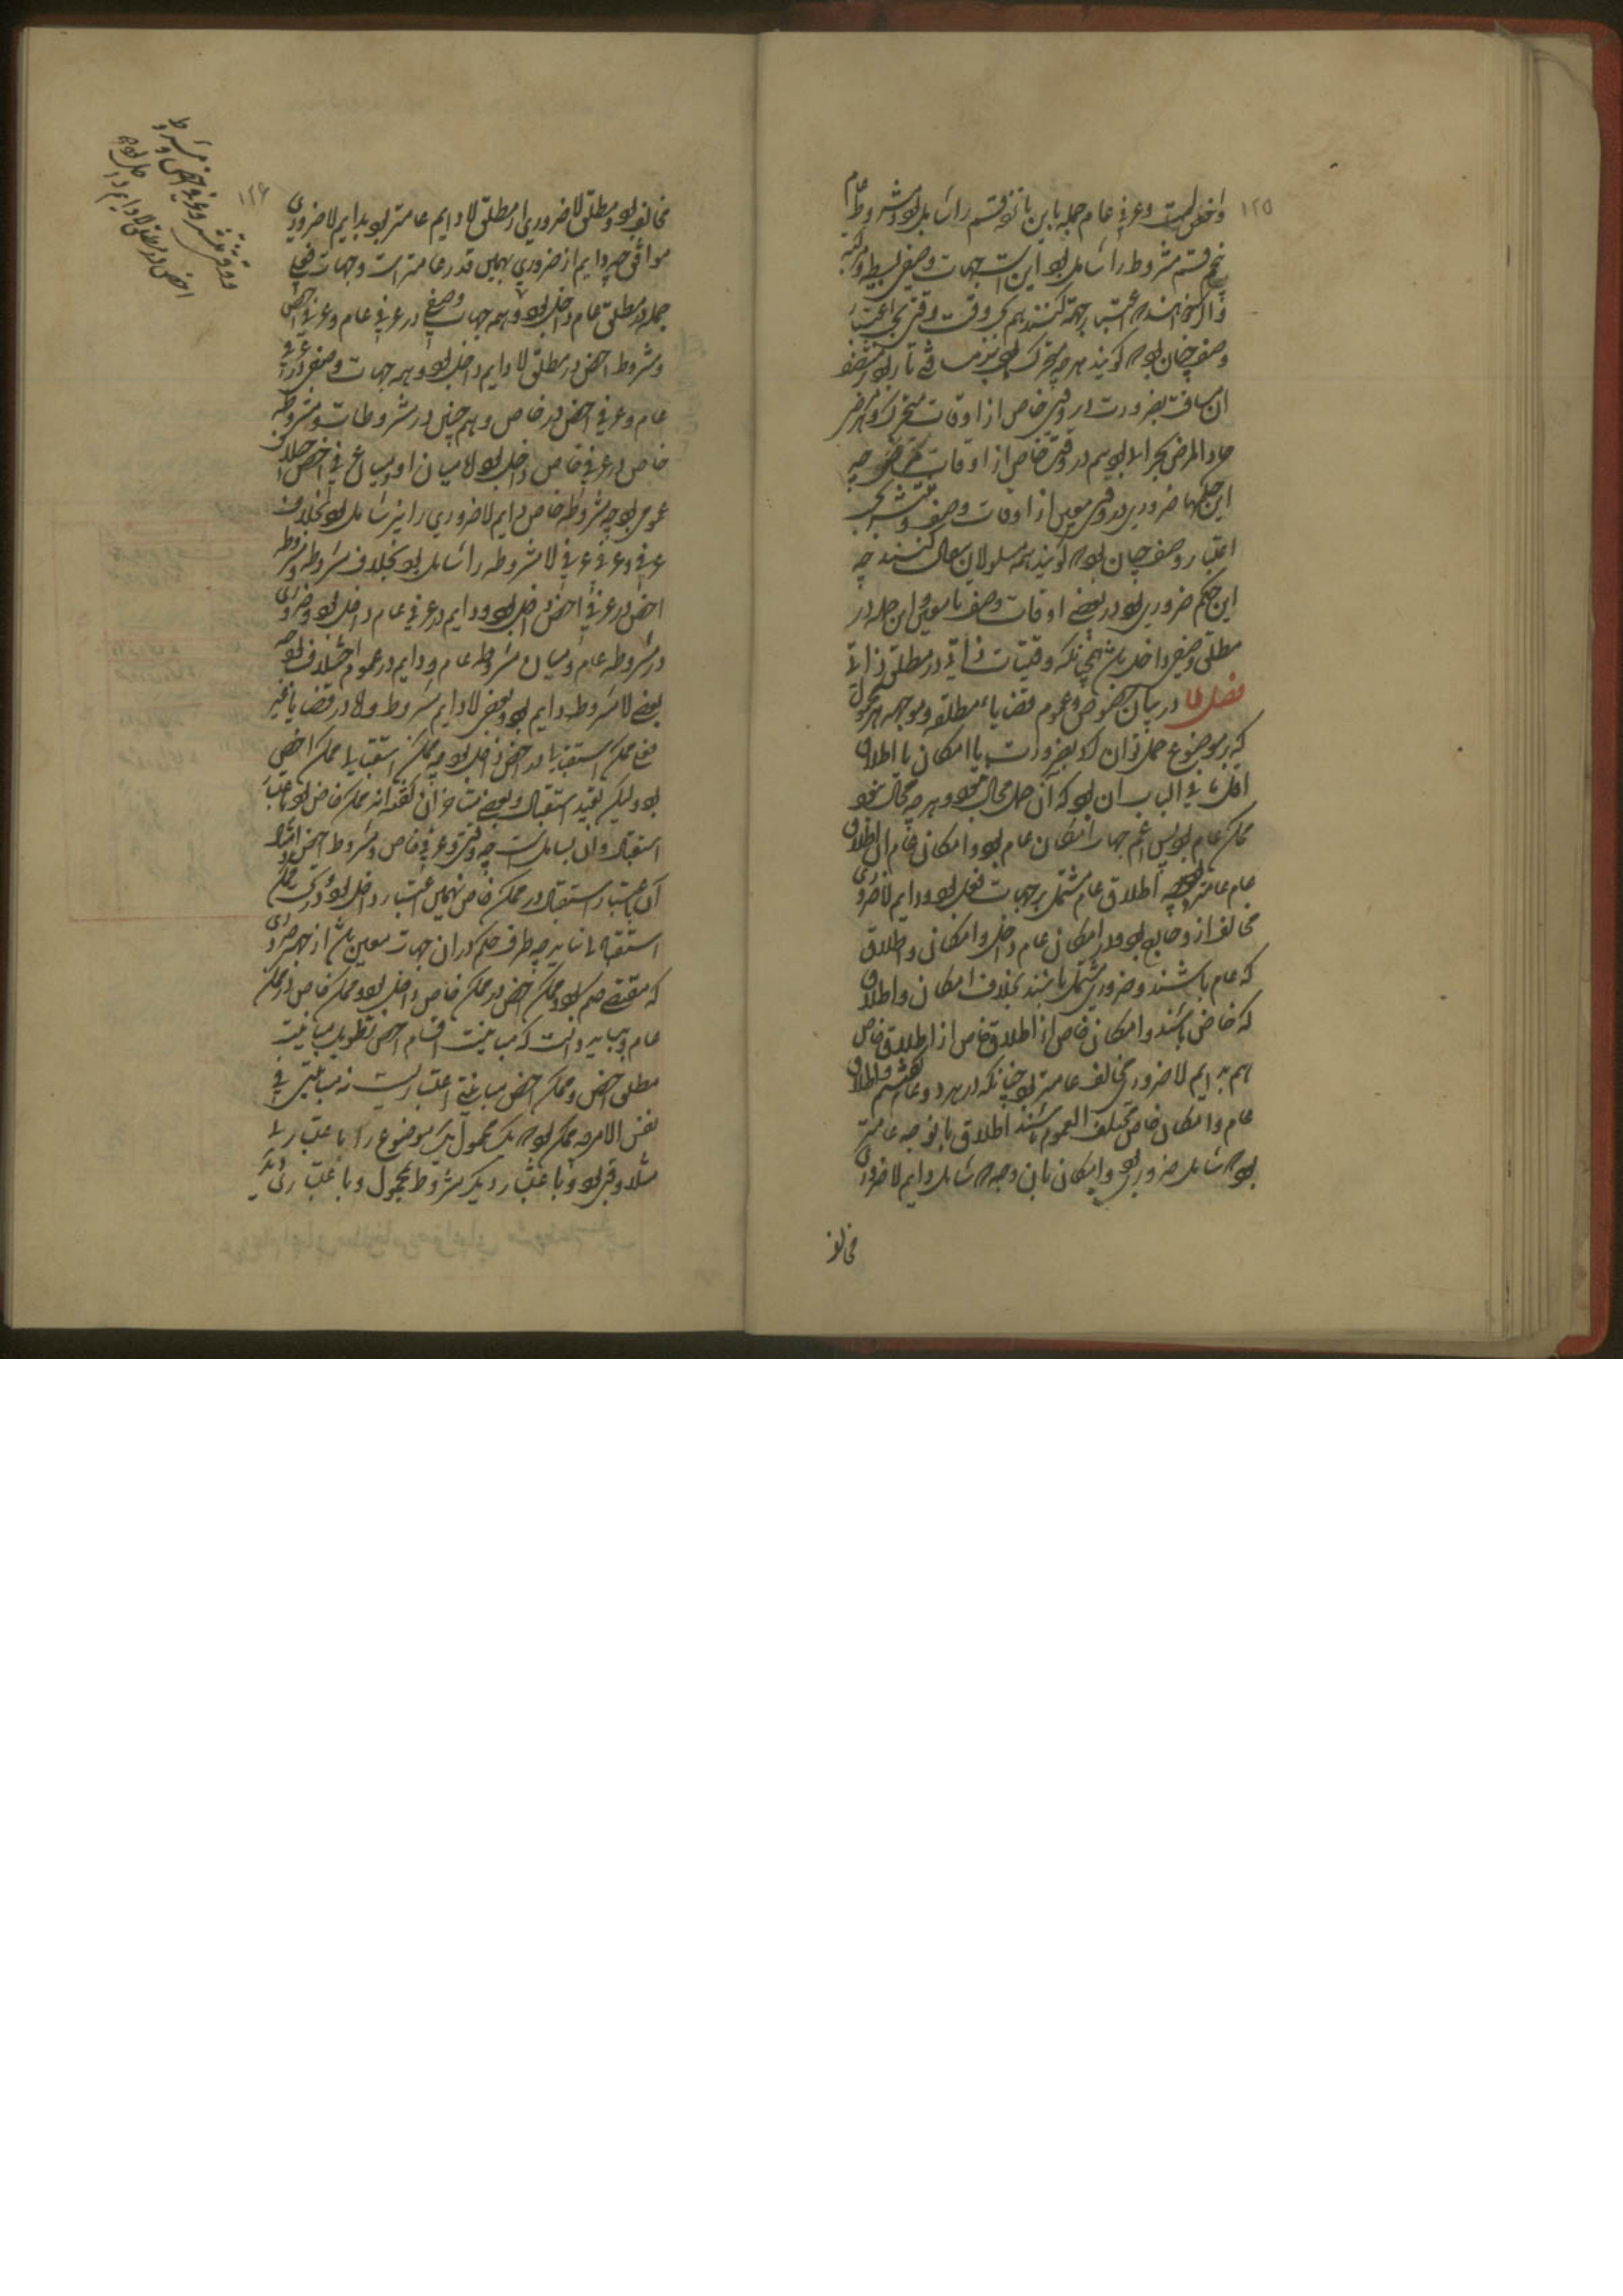 ۱۲۵
واخص است وعرفی عام جمله با این پانزده قسم را شامل بود ومشروط عام
پنجم قسم مشروط را شامل بود این است جهات وصفی بسیطه ومرکبه
واگر خواهند که اعتبار جهت کنند هم بحسب وقت وقتی بحسب اعتبار
وصف چنان بود که گویند هر چه متحرک بود بر مسافتی تا رکون منتصف
آن مسافت بضرورت در وقتی خاص از اوقات متحرک و هر مریض
حاد المرض را بحران بود هم در وقت خاص از اوقات مرض چه
این حکمها ضروری بود در وقتی معین از اوقات وصف ومنتشر بحسب
اعتبار وصف چنان بود که گویند همه مسلولان سعال کنند چه
این حکم ضروری بود در بعضی اوقات وصف نامعین و این جمله در
مطلق وصفی داخل باشد همچنانکه وقتیات ذاتی در مطلق ذاتی
فصل در بیان خصوص وعموم قضایاء مطلقه وموجهه هر محمول
که بر موضوع حمل توان کرد بضرورت یا امکان یا اطلاق
اقل ما فی الباب آن بود که آن حمل محال نبود و هر چه محال نبود
ممکن عام بود پس اعم جهات امکان عام بود وامکان عام از اطلاق
عام عامتر بود چه اطلاق عام مشتمل بر جهات فعل بود ودایم لاضروری
مخالف از و خارج بود ودر امکان عام داخل وامکان واطلاق
که عام باشند وضروری مشتمل باشند بخلاف امکان واطلاق
که خاص باشند وامکان خاص از اطلاق خاص از اطلاق خاص
هم بدایم لاضروری مخالف عامتر بود چنانکه در هر دو عام گفتیم واطلاق
عام وامکان خاص مختلف العموم باشند اطلاق بآن وجه عامتر
بود که شامل ضروری بود وامکان بآن وجه که شامل دایم لاضروری
مخالف
۱۲۶
مخالف بود ومطلق لاضروری از مطلق لادایم عامتر بود بدایم لاضروری
موافق چه دایم از ضروری بهمین قدر عامتر است وجهات فعلی
جمله در مطلق عام داخل بود وهمه جهات وصفی در عرفی عام وعرفی اخص
ومشروط اخص در مطلق لادایم داخل بود وهمه جهات وصفی در عرفی
عام وعرفی اخص در خاص وهم چنین در مشروطات ومشروطه
خاص در عرفی خاص داخل بود لا میان او ومیان عرفی اخص اختلاف
عموم بود چه مشروطه خاص دایم لاضروری را نیز شامل بود بخلاف
عرفی وعرفی لا مشروطه را شامل بود بخلاف مشروطه ومشروطه
اخص در عرفی اخص داخل بود ودایم در عرفی عام داخل بود وضروری
در مشروطه عام ومیان مشروطه عام ودایم در عموم اختلاف بود چه
بعضی لا مشروطه دایم بود وبعضی لادایم مشروط ولا در قضایا غیر
فعلی ممکن استقبالی در اخص داخل بود چه ممکن استقبالی ممکن اخص
بود ولیکن بقید استقبال وبعضی متاخران گفته‌اند ممکن خاص بود باعتبار
استقبال و آن شامل است چه وقتی وعرفی خاص ومشروط اخص امثال
آن باعتبار استقبال در ممکن خاص بهمین اعتبار داخل بود ودر ممکن
استقبالی نیاید چه طرف حکم در آن جهات معین باشد از جهت ضروری
که مقتضی حکم بود وممکن اخص در ممکن خاص داخل بود وممکن خاص در ممکن
عام وبباید دانست که مباینت اقسام اخص بطول مباینت
مطلق اخص وممکن اخص مباینتی اعتباریست نه مباینتی فی
نفس الامر چه ممکن بود که یک محمول یک موضوع را باعتباری
مثلا وقتی بود وباعتبار دیگر مشروط بمحمول وباعتباری دیگر
ووقتی ومنتشر وعرفی اخص ومشروط
اخص در مطلق لادایم داخل بود